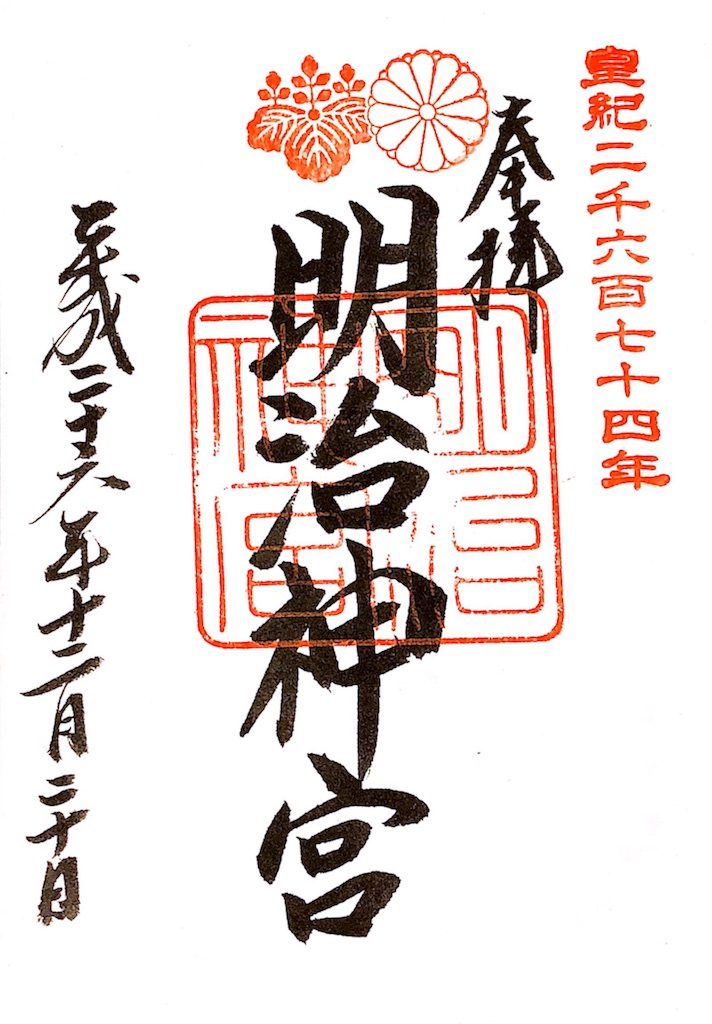 皇紀二千六百七十四年
奉拝
明治神宮
明治神宮
平成二十六年十二月二十日